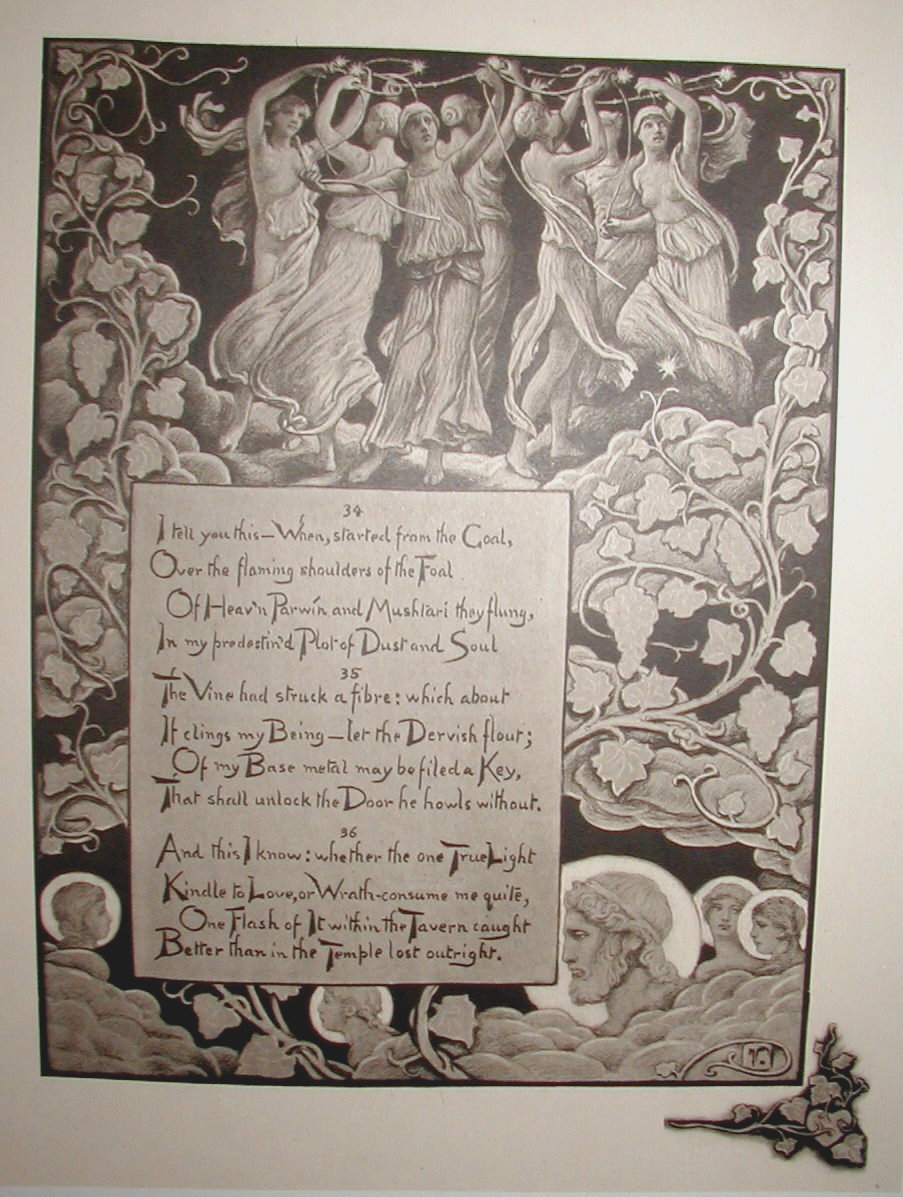 34
I tell you this—When, started from the Goal,
Over the flaming shoulders of the Foal
Of Heav'n Parwín and Mushtari they flung,
In my predestin'd Plot of Dust and Soul
35
The Vine had struck a fibre: which about
It clings my Being—let the Dervish flout;
Of my Base metal may be filed a Key,
That shall unlock the Door he howls without.
36
And this I know: whether the one True Light
Kindle to Love, or Wrath-consume me quite,
One Flash of It within the Tavern caught
Better than in the Temple lost outright.
V.